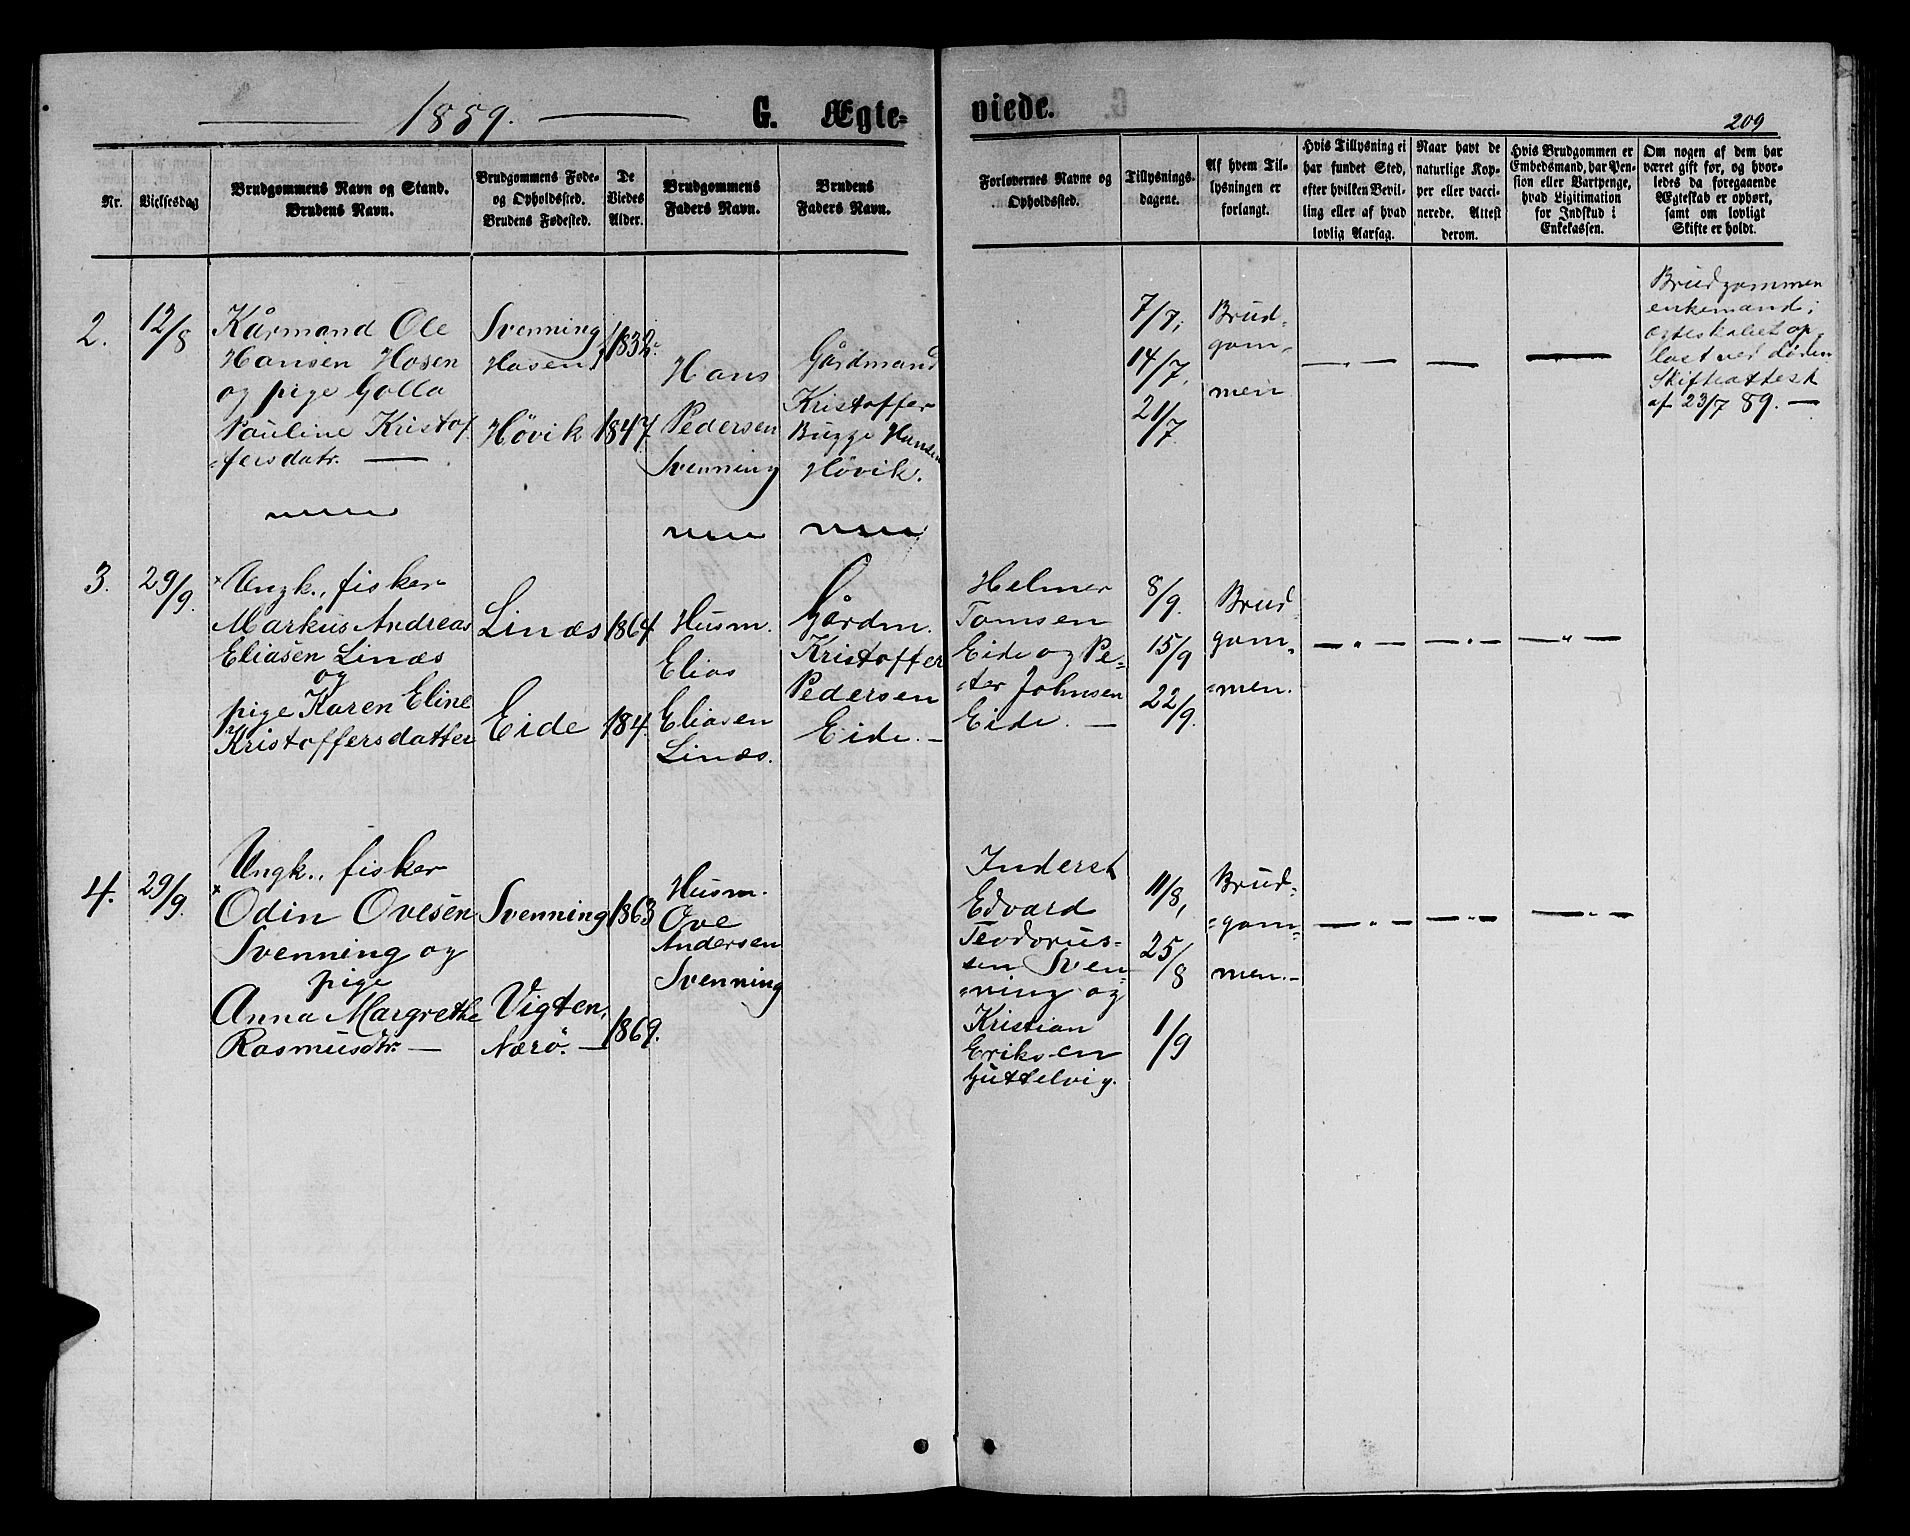 1889.
G. Ægte-
viede.
209
Nr.
Vielsesdag
Brudgommens Navn og Stand.
Brudens Navn.
Brudgommens Føde-
og Opholdssted.
Brudens Fødested.
De
Viedes
Alder.
Brudgommens
Faders Navn.
Brudens
Faders Navn.
Forlovernes Navne og
Opholdssted.
Tillysnings-
dagene.
Af hvem Til-
lysningen er
forlangt.
Hvis Tillysning ei
har fundet Sted,
efter hvilken Bevil-
ling eller af hvad
lovlig Aarsag.
Naar havt de
naturlige Kop-
per eller vacci-
nerede. Attest
derom.
Hvis Brudgommen er
Embedsmand, har Pen-
sion eller Vartpenge,
hvad Ligitimation
for Indskud i
Enkekassen.
Om nogen af dem har
været gift før, og hvor-
ledes da foregaaende
Ægteskab er ophørt,
samt om lovligt
Skifte er holdt.
2.
12/8
Kårmand Ole
Hansen Hosen
og pige Golla
Pauline Kristof
=fersdatr. —
Svenning
Hosen
Hövik
1832.
1847.
Hans
Pedersen
Svenning
Gårdmand
Kristoffer
Bugge Hansen
Hövik.
7/7,
14/7,
21/7
Brud=
gom=
men
Brudgommen
enkemand;
ægteskabet op-
løst ved døden
Skifteattest
af 23/7 89. —
3.
29/9.
Ungk., fisker
Markus Andreas
Eliasen Linæs
og
pige Karen Eline
Kristoffersdatter
Linæs
Eide
1864.
184.
Husm.
Elias
Eliasen
Linæs.
Gårdm.
Kristoffer
Pedersen
Eide. —
Helmer
Tomsen
Eide og Pe=
=ter Johnsen
Eide. —
8/9.
15/9
22/9.
Brud=
gom=
=men.
4.
29/9.
Ungk., fisker
Odin Ovesen
Svenning og
pige
Anna Margrethe
Rasmusdtr. —
Svenning
Vigten,
Nærö. —
1863
1869.
Husm.
Ove
Andersen
Svenning
Inderst
Edvard
Teodorus-
sen Sven-
=ning og
Kristian
Eriksen
Guttelvig.
11/8,
25/8
1/9
Brud=
=gom=
men. -